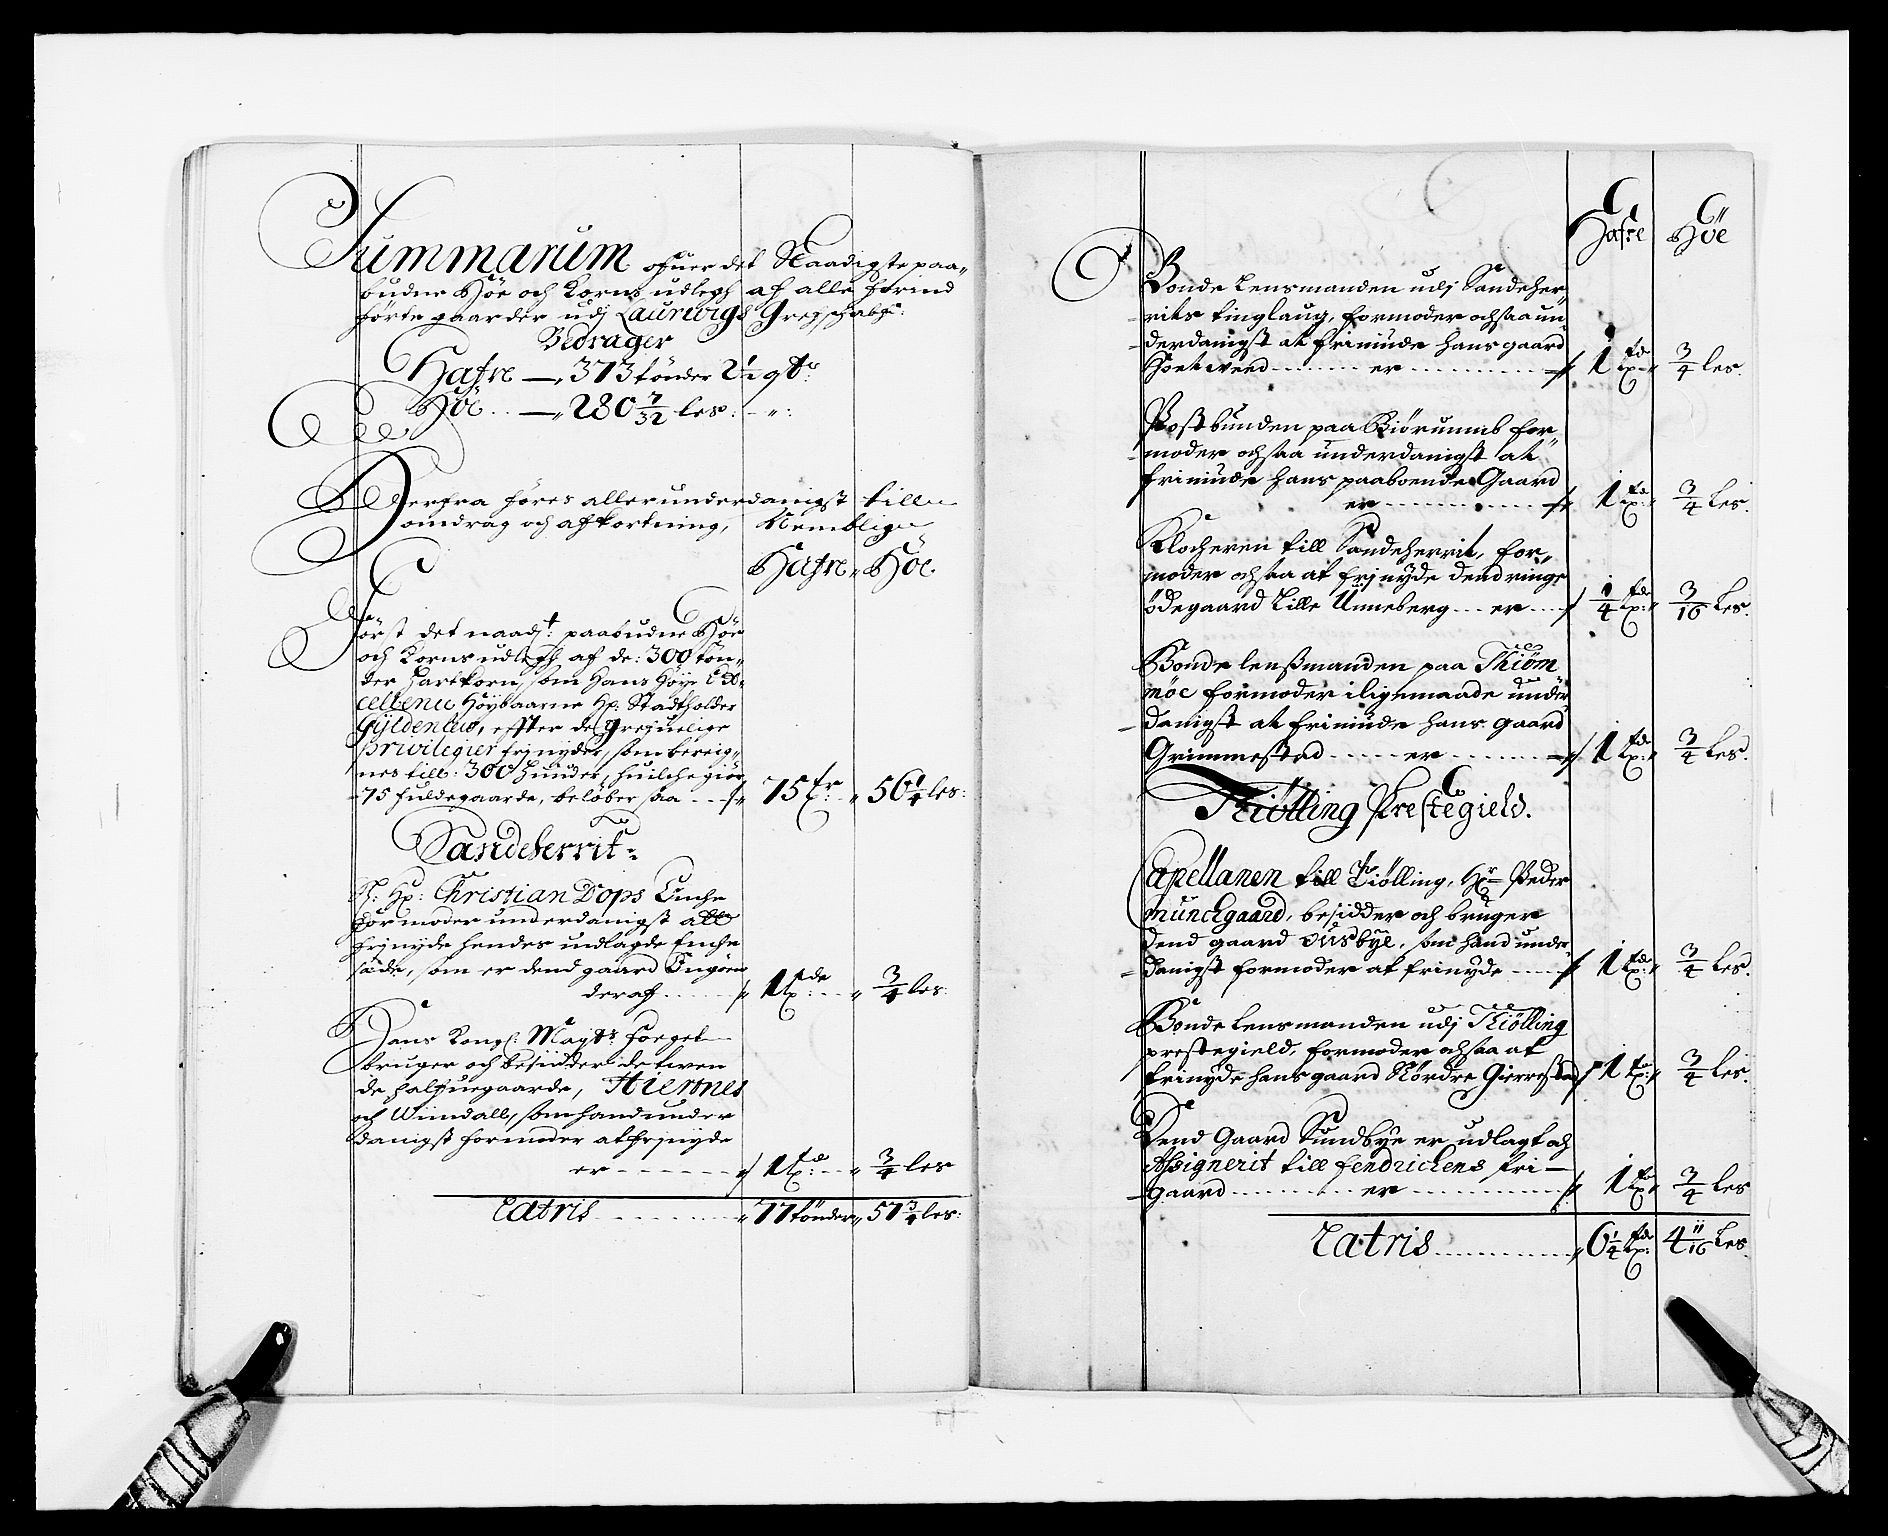 Summarum ofuer det Naadigste paa„
budne Höe och Korns udlegh af alle forind
förte gaarder udj Laurwigs Grefschabs:
Bedrager
Hafre —„ 373 tönder 2½ qtr
Höe .. —„ 280 7/32 les: - „:
Derfra föres allerunderdanigst till
omdrag och afkortning, Nemblig
Hafre„ Höe.
Först det naadst: paabudne Höe
och Korns udlegh af de: 300 tön„
der Hartkorn, som Hans Höye Ex„
cellence Höybaarne Hr: Stadtholder
Gyldenlew, effter de grefuelige
privilegier frjnyder, som bereig„
nes till: 300 hunder, huilche giör
75 fuldegaarde, belöber saa ... „ 75 tr: „ 56¼ les:
Sandeherrit:
Sl: Hr: Christian Dops Enche
formoder underdanigst att
frjnyde hendes udlagde Enche
sæde, som er dend gaard
deraf ........ „ 1 tde: ... „ ¾ les:
Hans Kongl: Mayts foget
bruger och besidder de tven
de halfuegaarde, Hiertnes
och Wiindall, som hand under
danigst formoder at frjnyde
er - - - - - - „ 1 td: ... „ ¾ les
Latris - - - - - - „ 77 tönder „ 57¾ les:
Hafre Höe
Bonde Lensmanden udj Sandeher„
rits tinglaug, formoder ochsaa un„
derdanigst at friniude hans gaard
er ............ 1 td: „ ¾ les.
Postbunden paa Biörumb for„
moder ochsaa underdanigst at
friniude hans paaboende Gaard
er ............ 1 td: „ ¾ les.
Klocheren till Sandeherrit, for„
moder ochsaa at frjnyde dend ringe
ödegaard Lille Unneberg ... er ... ¼ td: „ 3/16 les.
Bonde lensmanden paa Thiöm
möe formoder iligemaade under„
danigst at friniude hans gaard
Grimmestad ...... er ...... 1 td: „ ¾ les.
Thiölling Prestegield.
Capellanen till Tiölling, Hr Peder
Munchgaard, besidder och bruger
dend gaard Ousbye, som hand under„
danigst formoder at frinyde ...... 1 td: „ ¾ les.
Bonde lensmanden udj Thiölling
prestegield, formoder ochsaa at
frinyde hans gaard Nördre Gierrestad 1 td: „ ¾ les.
Dend Gaard Sundbye er udlagt och
Assignerit till fendrichens fri—
gaard ............ er ............ 1 td: „ ¾ les
Latris ............ „ 6¼ td: 4 11/16 les